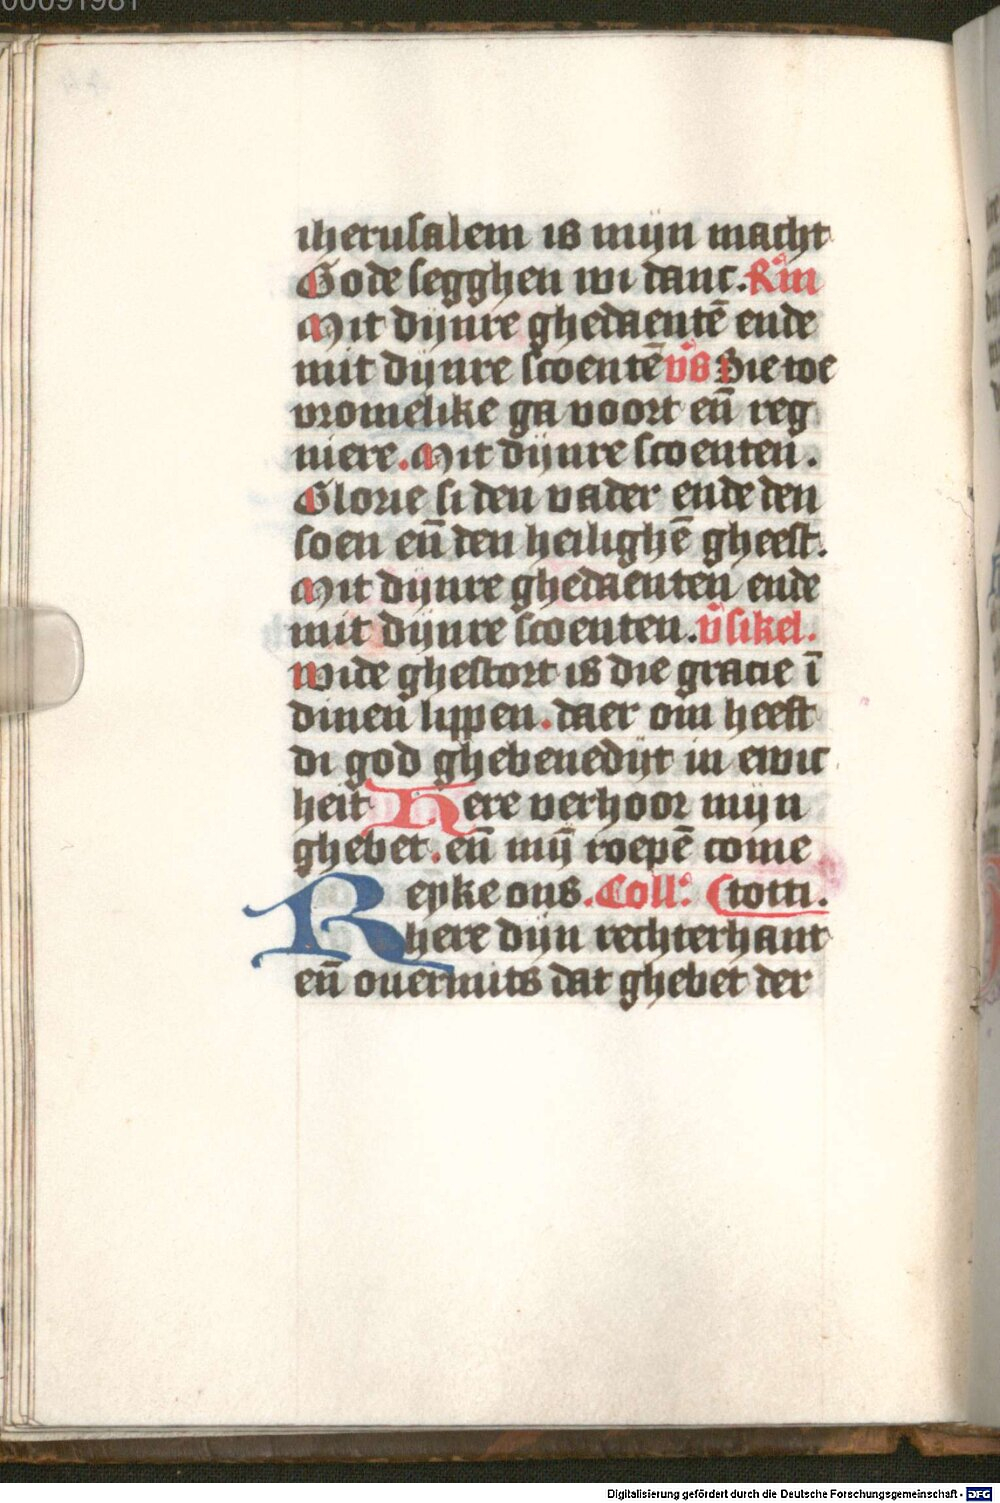 00091981
iherusalem is mijn macht
Gode segghen wi danc. R̃m
Mit dijnre ghedaentē ende
mit dijnre scoentē v̄s Sie toe
vromelike ga voort en̄ reg
niere. Mit dijnre scoenten.
Glorie si den vader ende den
soen en̄ den heilighē gheest.
Mit dijnre ghedaenten ende
mit dijnre scoenten. v̄sikel.
Wide ghestort is die gracie ī
dinen lippen. daer om heeft
di god ghebenedijt in ewic
heit Here verhoor mijn
ghebet. en̄ mij̄ roepē come
Repke ons. Coll᷒ totti.
here dijn rechterhant
en̄ ouermits dat ghebet der
Digitalisierung gefördert durch die Deutsche Forschungsgemeinschaft - DFG